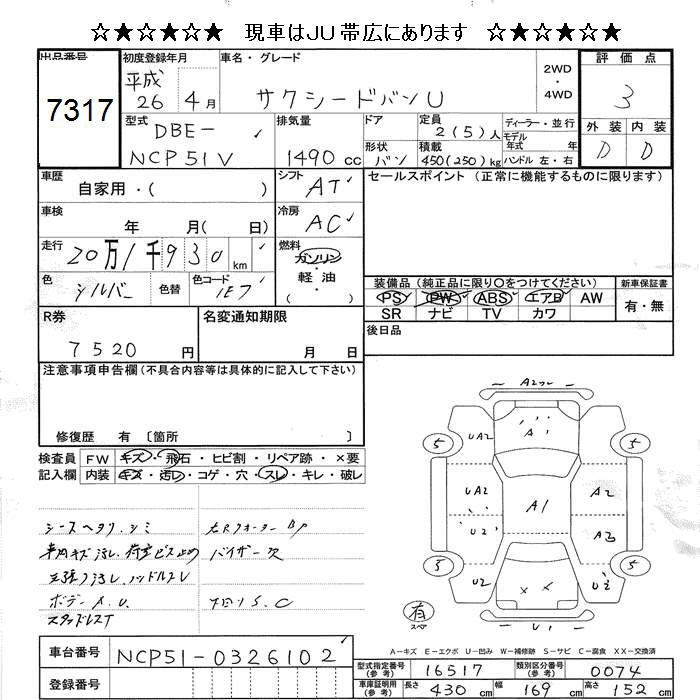 ☆★☆★☆★ 現車はJU帯広にあります ☆★☆★☆★
出品番号 初度登録年月 車名・グレード 評価点
7317 平成 26 4月 サクシードバンU 2WD ・ 4WD 3
外装 内装
D D
型式 DBE- 排気量 ドア 定員 2(5)人 ディーラー・並行
NCP51V 1490cc 形状 バン 積載 450(250)kg モデル年式 年 ハンドル 左・右
車歴 シフト セールスポイント (正常に機能するものに限ります)
自家用・( ) AT
車検 冷房
年 月( 日) AC
走行 燃料
20万1千930km ガソリン
色 色替 色コード 軽・油
シルバー 1E7 ( )
装備品 (純正品に限り○をつけてください) 新車保証書
PS PW ABS エアB AW 有・無
SR ナビ TV カワ
R券 名変通知期限 後日品
7520円 月 日
注意事項申告欄(不具合内容等は具体的に記入して下さい)
修復歴 有 〔箇所 〕
検査員 FW キズ・飛石・ヒビ割・リペア跡・×要
記入欄 内装 キズ・汚レ・コゲ・穴・スレ・キレ・破レ
シースヘタリ、シミ
車内キズ汚レ、荷室ビス止め バイザー欠
ハンドルスレ
ボデーA.U. S.C
スタッドレスT
A1
UA2 A1
5 5
UA2 A1 A2
U2 A3
5 5
U2 × × U2
有 スペア U1
A-キズ E-エクボ U-凹み W-補修跡 S-サビ C-腐食 XX-交換済
車台番号 NCP51-0326102
型式指定番号(参考) 16517 類別区分番号(参考) 0074
登録番号 車庫証明用(参考) 長さ 430cm 幅 169cm 高さ 152cm